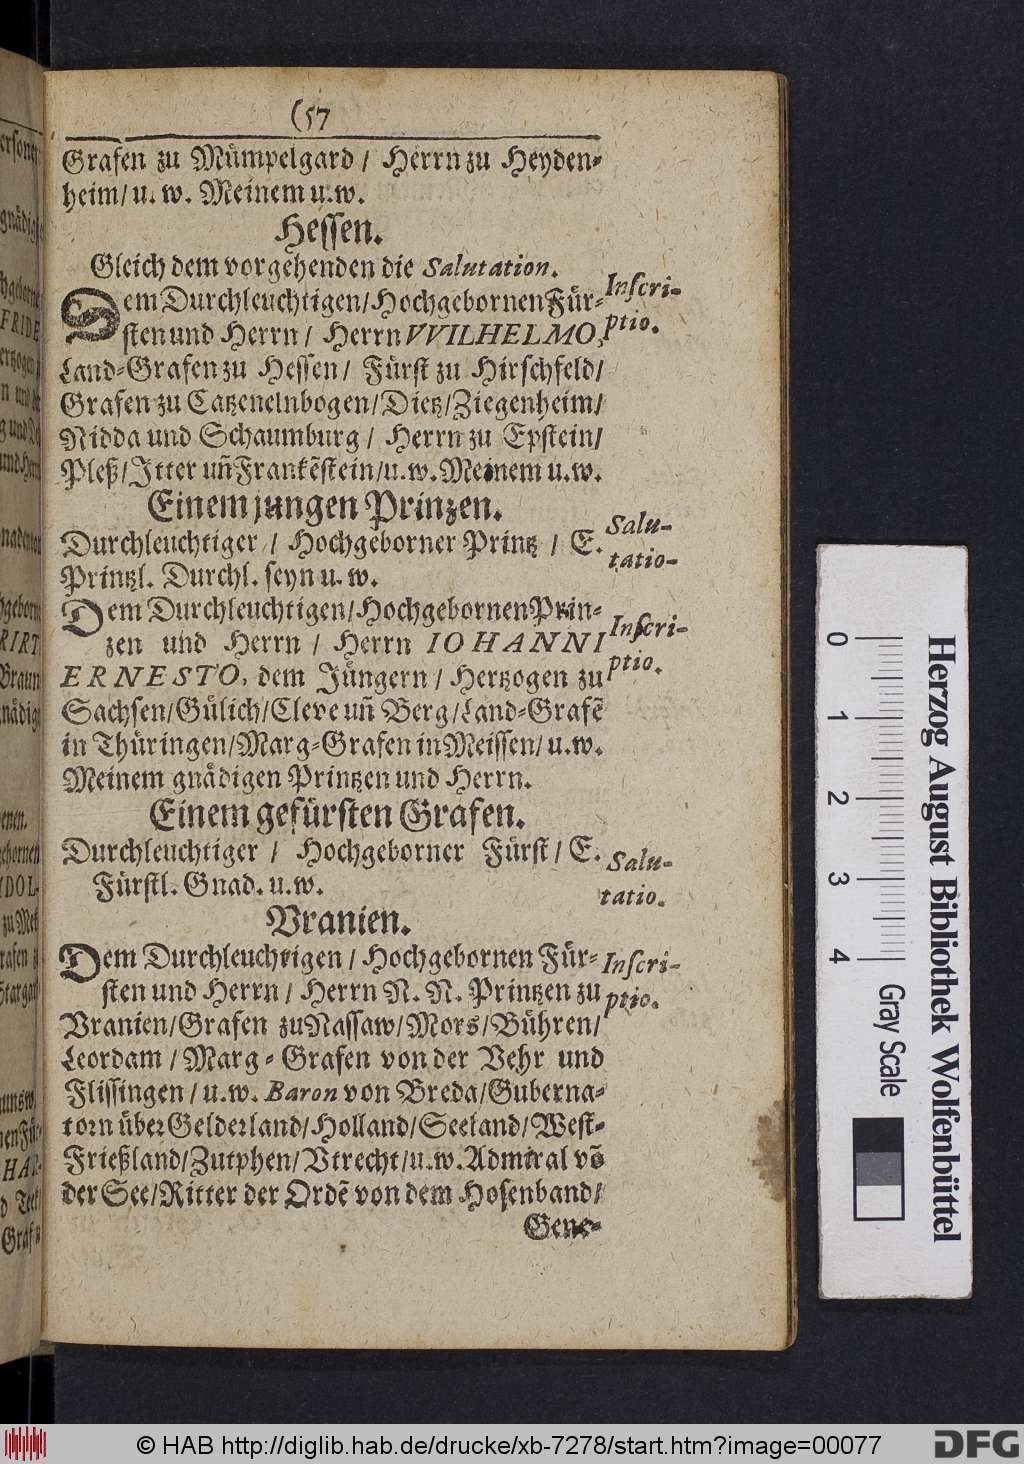 (57
Grafen zu Mümpelgard / Herrn zu Heyden-
heim/ u. w. Meinem u. w.
Hessen.
Gleich dem vorgehenden die Salutation.
Dem Durchleuchtigen/ Hochgebornen Für-
Inscri-
sten und Herrn/ Herrn VVILHELMO,
ptio.
Land-Grafen zu Hessen/ Fürst zu Hirschfeld/
Grafen zu Catzenelnbogen/ Dietz/ Ziegenheim/
Nidda und Schaumburg / Herrn zu Epstein/
Pleß/ Itter uñ Frankẽstein/ u. w. Meinem u. w.
Einem jungen Prinzen.
Salu-
Durchleuchtiger / Hochgeborner Printz / E.
tatio-
Printzl. Durchl. seyn u. w.
Dem Durchleuchtigen/ Hochgebornen Prin-
Inscri-
zen und Herrn / Herrn IOHANNI
ptio.
ERNESTO, dem Jüngern / Hertzogen zu
Sachsen/ Gülich/ Cleve uñ Berg/ Land-Grafẽ
in Thüringen/ Marg-Grafen in Meissen/ u. w.
Meinem gnädigen Printzen und Herrn.
Einem gefürsten Grafen.
Durchleuchtiger / Hochgeborner Fürst / E.
Salu-
Fürstl. Gnad. u. w.
tatio.
Vranien.
Dem Durchleuchtigen / Hochgebornen Für-
Inscri-
sten und Herrn / Herrn N. N. Printzen zu
ptio.
Vranien/ Grafen zu Nassaw/ Mors/ Bühren/
Leordam / Marg-Grafen von der Vehr und
Flissingen / u. w. Baron von Breda/ Guberna-
torn über Gelderland/ Holland/ Seeland/ West-
Frießland/ Zutphen/ Vtrecht/ u. w. Admiral võ
der See/ Ritter der Ordẽ von dem Hosenband/
Gene-
Herzog August Bibliothek Wolfenbüttel
0 1 2 3 4 Gray Scale
© HAB http://diglib.hab.de/drucke/xb-7278/start.htm?image=00077
HAB
DFG